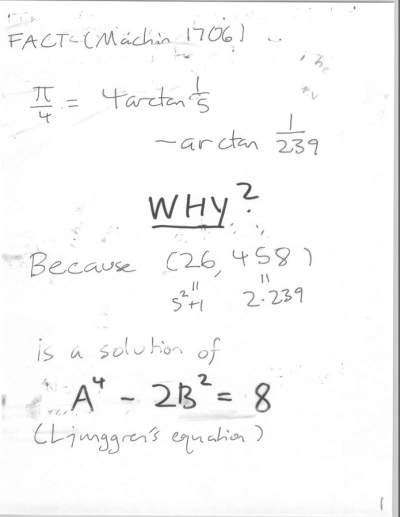 FACT- (Machin 1706)
π/4 = 4arctan 1/5
- arctan 1/239
WHY?
Because (26, 458)
5²+1 2·239
is a solution of
A⁴ - 2B² = 8
(Ljunggren's equation)
1